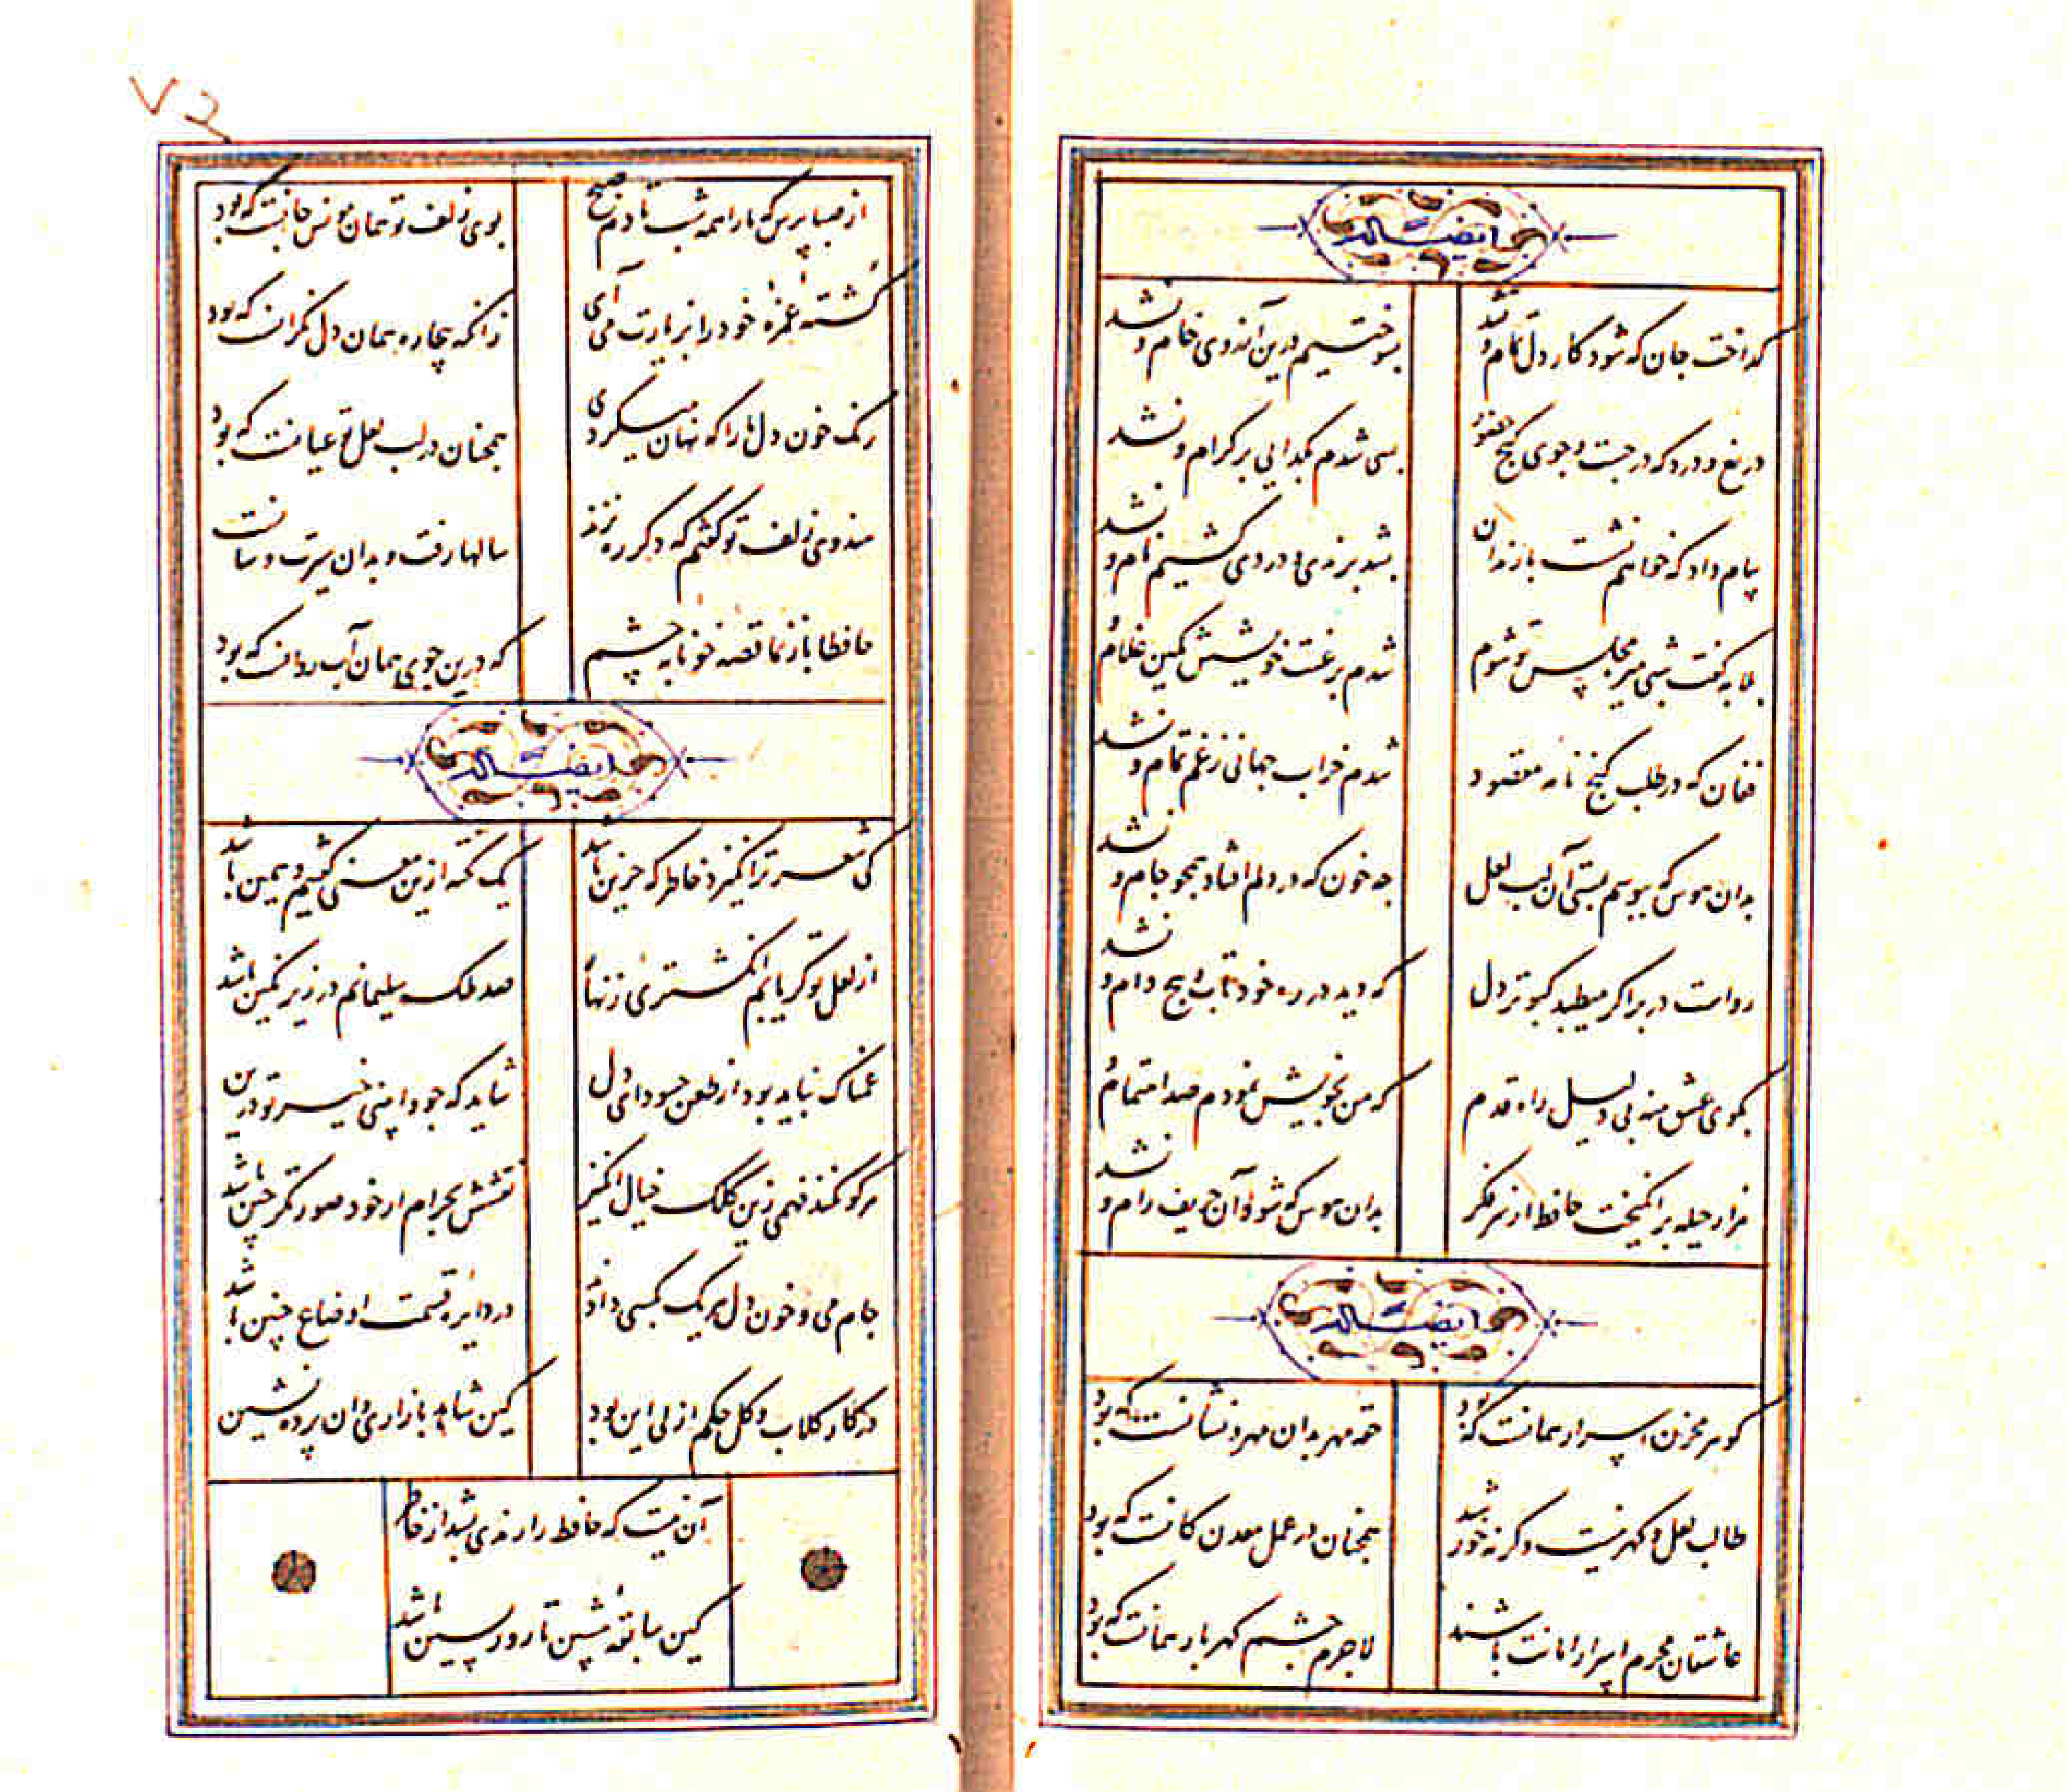 وایضاً له
گداخت جان که شود کار دل تمام و نشد
بسوختیم درین آرزوی خام و نشد
دریغ و درد که در جست و جوی گنج حضور
بسی شدم بگدایی بر کرام و نشد
پیام داد که خواهم نشست با رندان
بشد برندی و دردی کشیم نام و نشد
بلابه گفت شبی میر مجلس تو شوم
شدم برغبت خویشش کمین غلام و نشد
فغان که در طلب گنج نامه مقصود
شدم خراب جهانی ز غم تمام و نشد
بدان هوس که ببوسم بمستی آن لب لعل
چه خون که در دلم افتاد همچو جام و نشد
رواست در بر اگر میطپد کبوتر دل
که دید در ره خود تاب و پیچ دام و نشد
بکوی عشق منه بی دلیل راه قدم
که من بخویش نمودم صد اهتمام و نشد
هزار حیله برانگیخت حافظ از سر فکر
بدان هوس که شود آن حریف رام و نشد
وایضاً له
گوهر مخزن اسرار همانست که بود
حقه مهر بدان مهر و نشانست که بود
طالب لعل و گهر نیست وگرنه خورشید
همچنان در عمل معدن کانست که بود
عاشقان محرم اسرار امانت باشند
لاجرم چشم گهربار همانست که بود
۷۵
از صبا پرس که ما را همه شب تا دم صبح
بوی زلف تو همان مونس جانست که بود
کشته غمزه خود را بزیارت می آی
زانکه بیچاره همان دل نگرانست که بود
رنگ خون دل ما را که نهان میکردی
همچنان در لب لعل تو عیانست که بود
هندوی زلف تو گفتم که دگر ره نزند
سالها رفت و بدان سیرت و سانست
حافظا باز نما قصه خونابه چشم
که درین جوی همان آب روانست که بود
وایضاً له
کی شعر تر انگیزد خاطر که حزین باشد
یک نکته ازین معنی گفتیم و همین باشد
از لعل تو گر یابم انگشتری زنهار
صد ملک سلیمانم در زیر نگین باشد
غمناک نباید بود از طعن حسود ای دل
شاید که چو وا بینی خیر تو درین
هر کو نکند فهمی زین کلک خیال انگیز
نقشش بحرام ار خود صورتگر چین باشد
جام می و خون دل هر یک بکسی دادند
در دایره قسمت اوضاع چنین باشد
در کار گلاب و گل حکم ازلی این بود
کین شاهد بازاری وان پرده نشین
آن نیست که حافظ را رندی بشد از خاطر
کین سابقه پیشین تا روز پسین باشد